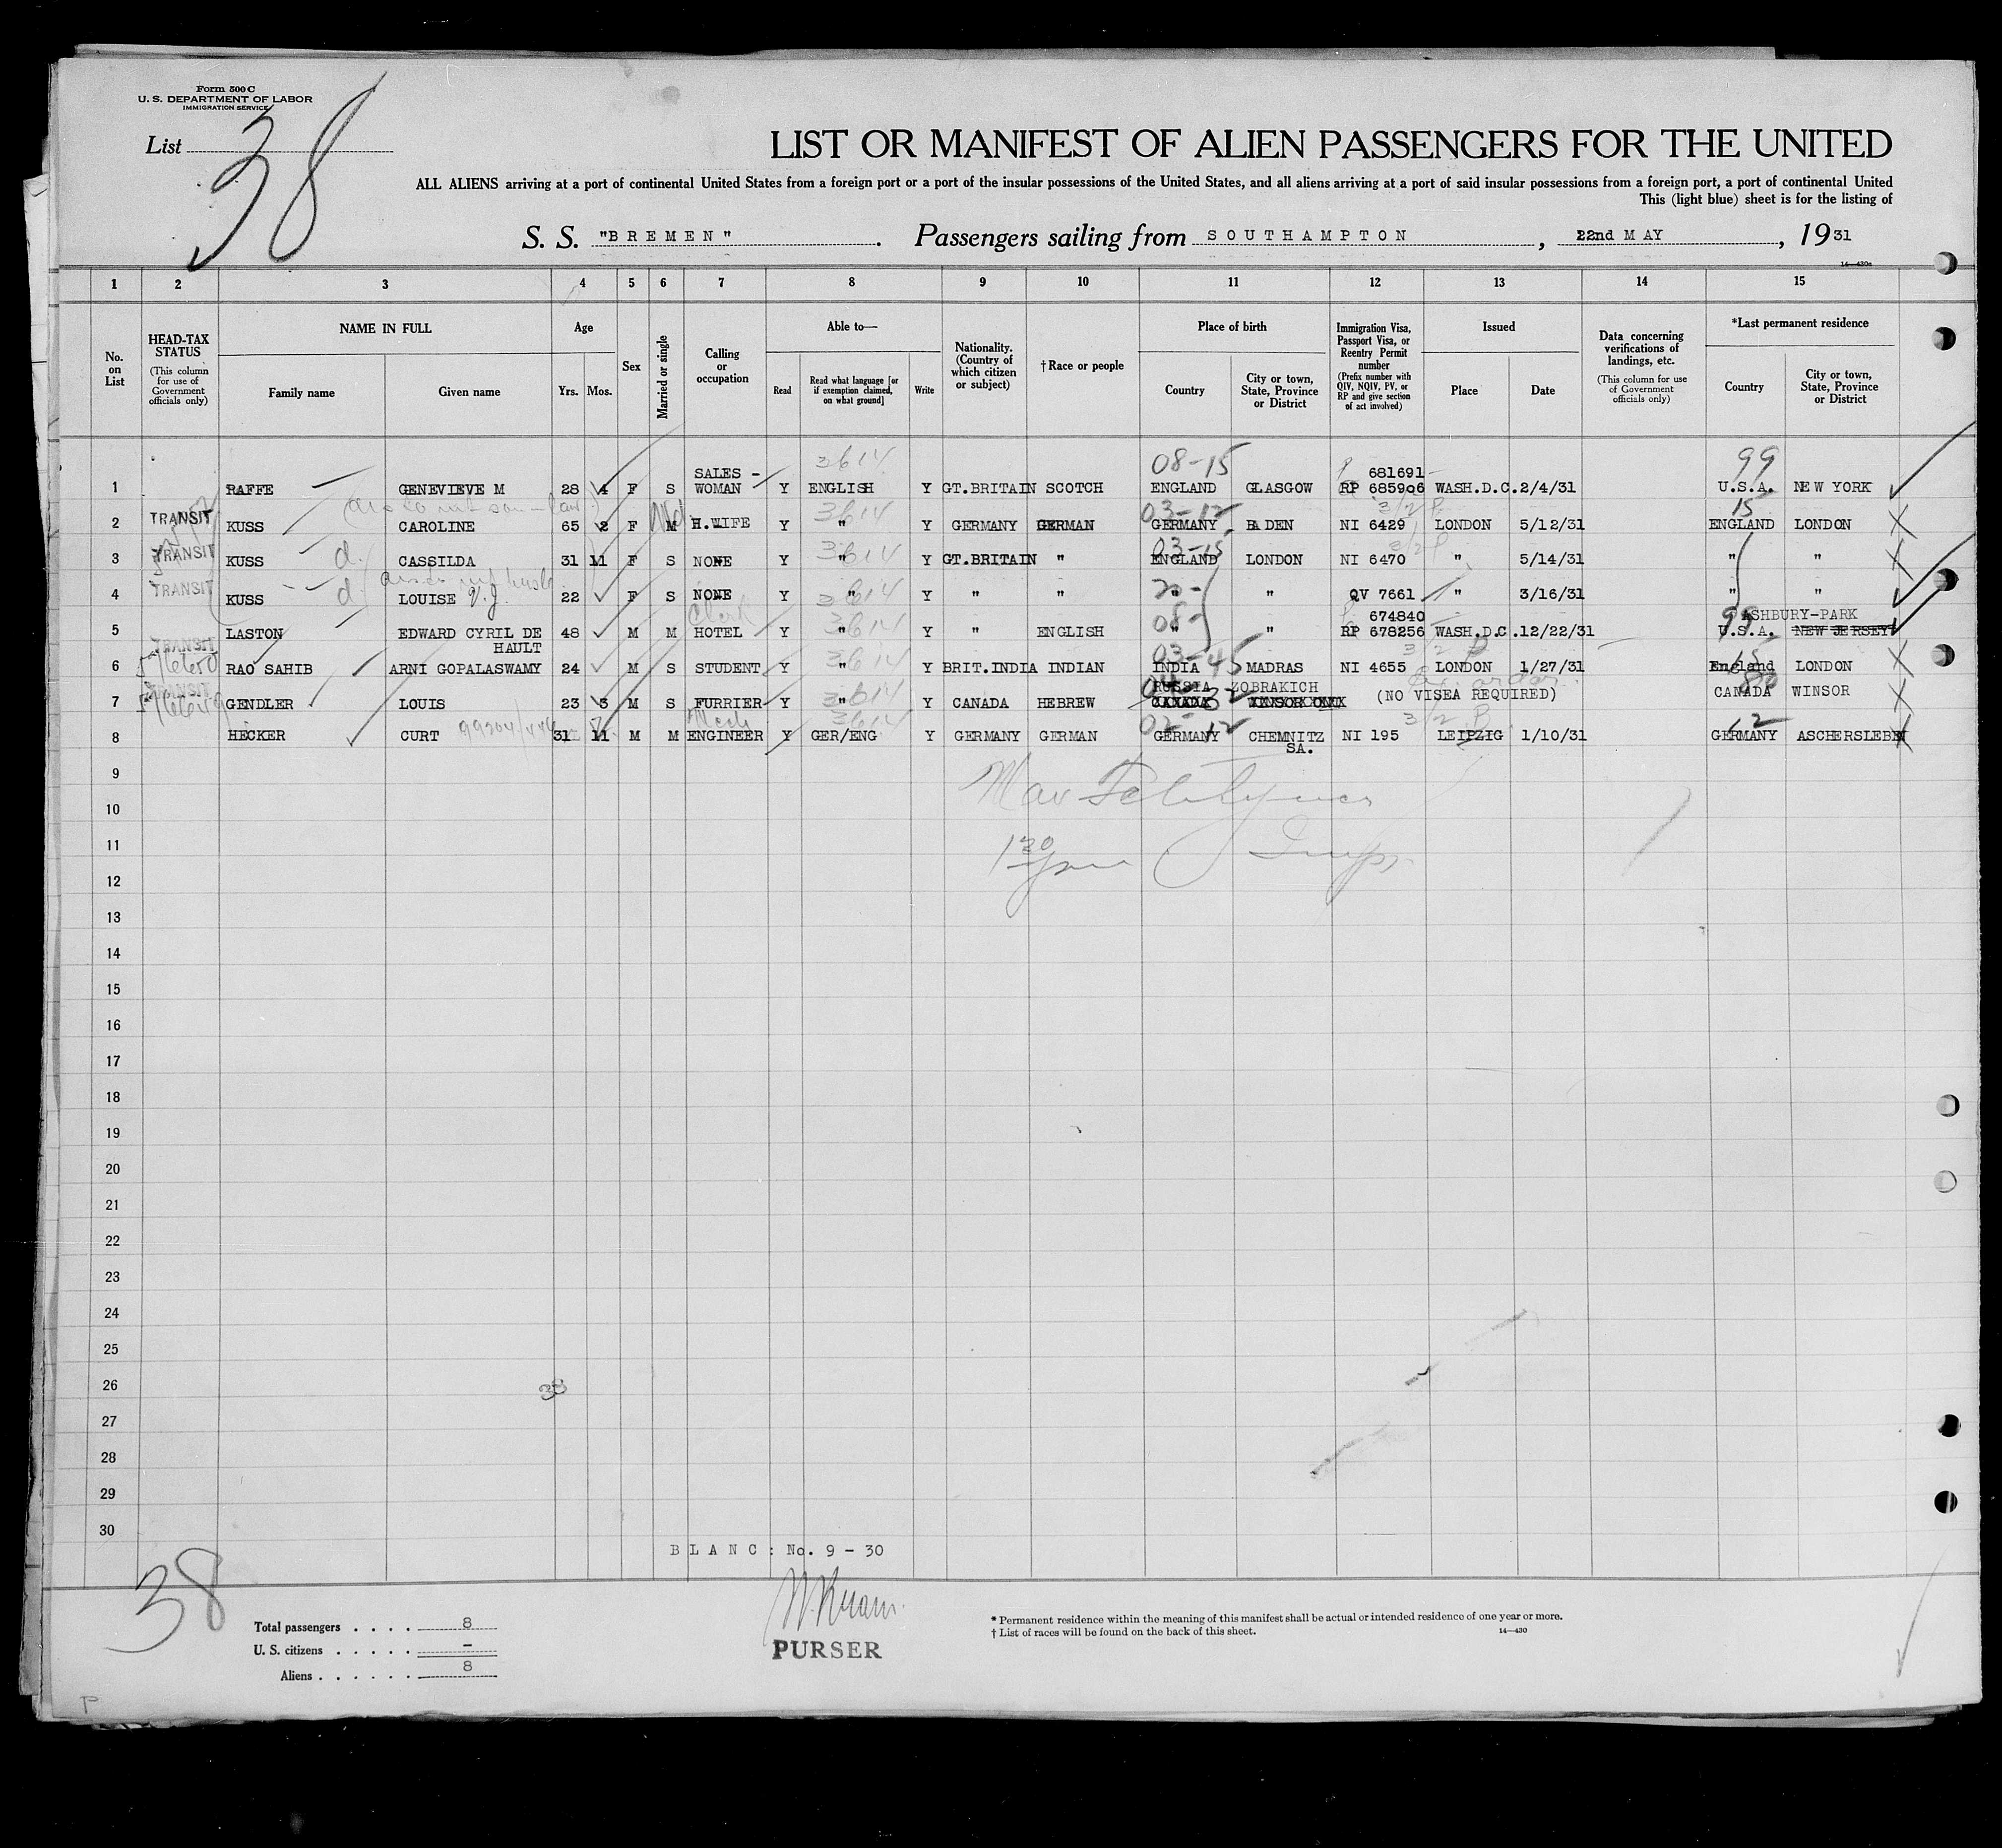 Form 500 C
U. S. DEPARTMENT OF LABOR
IMMIGRATION SERVICE
List 38
LIST OR MANIFEST OF ALIEN PASSENGERS FOR THE UNITED
ALL ALIENS arriving at a port of continental United States from a foreign port or a port of the insular possessions of the United States, and all aliens arriving at a port of said insular possessions from a foreign port, a port of continental United
This (light blue) sheet is for the listing of
S. S. "BREMEN" . Passengers sailing from SOUTHAMPTON , 22nd MAY , 1931
14—430a
1 2 3 4 5 6 7 8 9 10 11 12 13 14 15
No. on List
HEAD-TAX STATUS (This column for use of Government officials only)
NAME IN FULL
Family name Given name
Age
Yrs. Mos.
Sex
Married or single
Calling or occupation
Able to—
Read Read what language [or if exemption claimed, on what ground] Write
Nationality. (Country of which citizen or subject)
† Race or people
Place of birth
Country City or town, State, Province or District
Immigration Visa, Passport Visa, or Reentry Permit number (Prefix number with QIV, NQIV, PV, or RP and give section of act involved)
Issued
Place Date
Data concerning verifications of landings, etc. (This column for use of Government officials only)
*Last permanent residence
Country City or town, State, Province or District
3614 08-15 99
SALES - 681691
1 RAFFE GENEVIEVE M 28 4 F S WOMAN Y ENGLISH Y GT.BRITAIN SCOTCH ENGLAND GLASGOW RP 685906 WASH.D.C. 2/4/31 U.S.A. NEW YORK
3614 03-12 3/2 15
2 TRANSIT KUSS CAROLINE 65 2 F M Wd H.WIFE Y " Y GERMANY GERMAN GERMANY BADEN NI 6429 LONDON 5/12/31 ENGLAND LONDON
3614 03-15 3/2
3 TRANSIT KUSS d. CASSILDA 31 11 F S NONE Y " Y GT.BRITAIN " ENGLAND LONDON NI 6470 " 5/14/31 " "
3614
4 TRANSIT KUSS d LOUISE V.J. 22 F S NONE Y " Y " " " " QV 7661 " 3/16/31 " "
Clerk 3614 08- 674840 99 ASHBURY-PARK
5 LASTON EDWARD CYRIL DE 48 M M HOTEL Y " Y " ENGLISH " " RP 678256 WASH.D.C. 12/22/31 U.S.A. NEW JERSEY
HAULT
3614 03-45 3/2 15
6 TRANSIT RAO SAHIB ARNI GOPALASWAMY 24 M S STUDENT Y " Y BRIT.INDIA INDIAN INDIA MADRAS NI 4655 LONDON 1/27/31 England LONDON
3614 RUSSIA ZOBRAKICH
7 TRANSIT GENDLER LOUIS 23 3 M S FURRIER Y " Y CANADA HEBREW CANADA (NO VISEA REQUIRED) CANADA WINSOR
Mech 3614 02-12 3/2 12
8 HECKER CURT 31 11 M M ENGINEER Y GER/ENG Y GERMANY GERMAN GERMANY CHEMNITZ NI 195 LEIPZIG 1/10/31 GERMANY ASCHERSLEBEN
SA.
9
10
11
12
13
14
15
16
17
18
19
20
21
22
23
24
25
26 38
27
28
29
30
BLANC: No. 9 - 30
38
PURSER
Total passengers . . . . 8
U. S. citizens . . . . . –
Aliens . . . . . . 8
* Permanent residence within the meaning of this manifest shall be actual or intended residence of one year or more.
† List of races will be found on the back of this sheet.
14—430